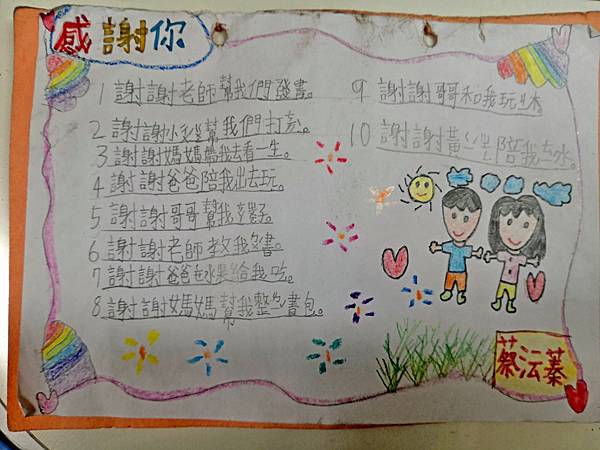 感謝你
1 謝謝老師幫我們發書。
2 謝謝小幫我們打
3 謝謝媽媽帶我去看一生。
4 謝謝爸爸陪我出去玩。
5 謝謝哥哥幫我
6 謝謝老師教我書。
7 謝謝爸爸水果給我吃。
8 謝謝媽媽幫我整ㄌ書包。
9 謝謝哥哥和我玩
10 謝謝黃陪我去水。
蔡沄蓁